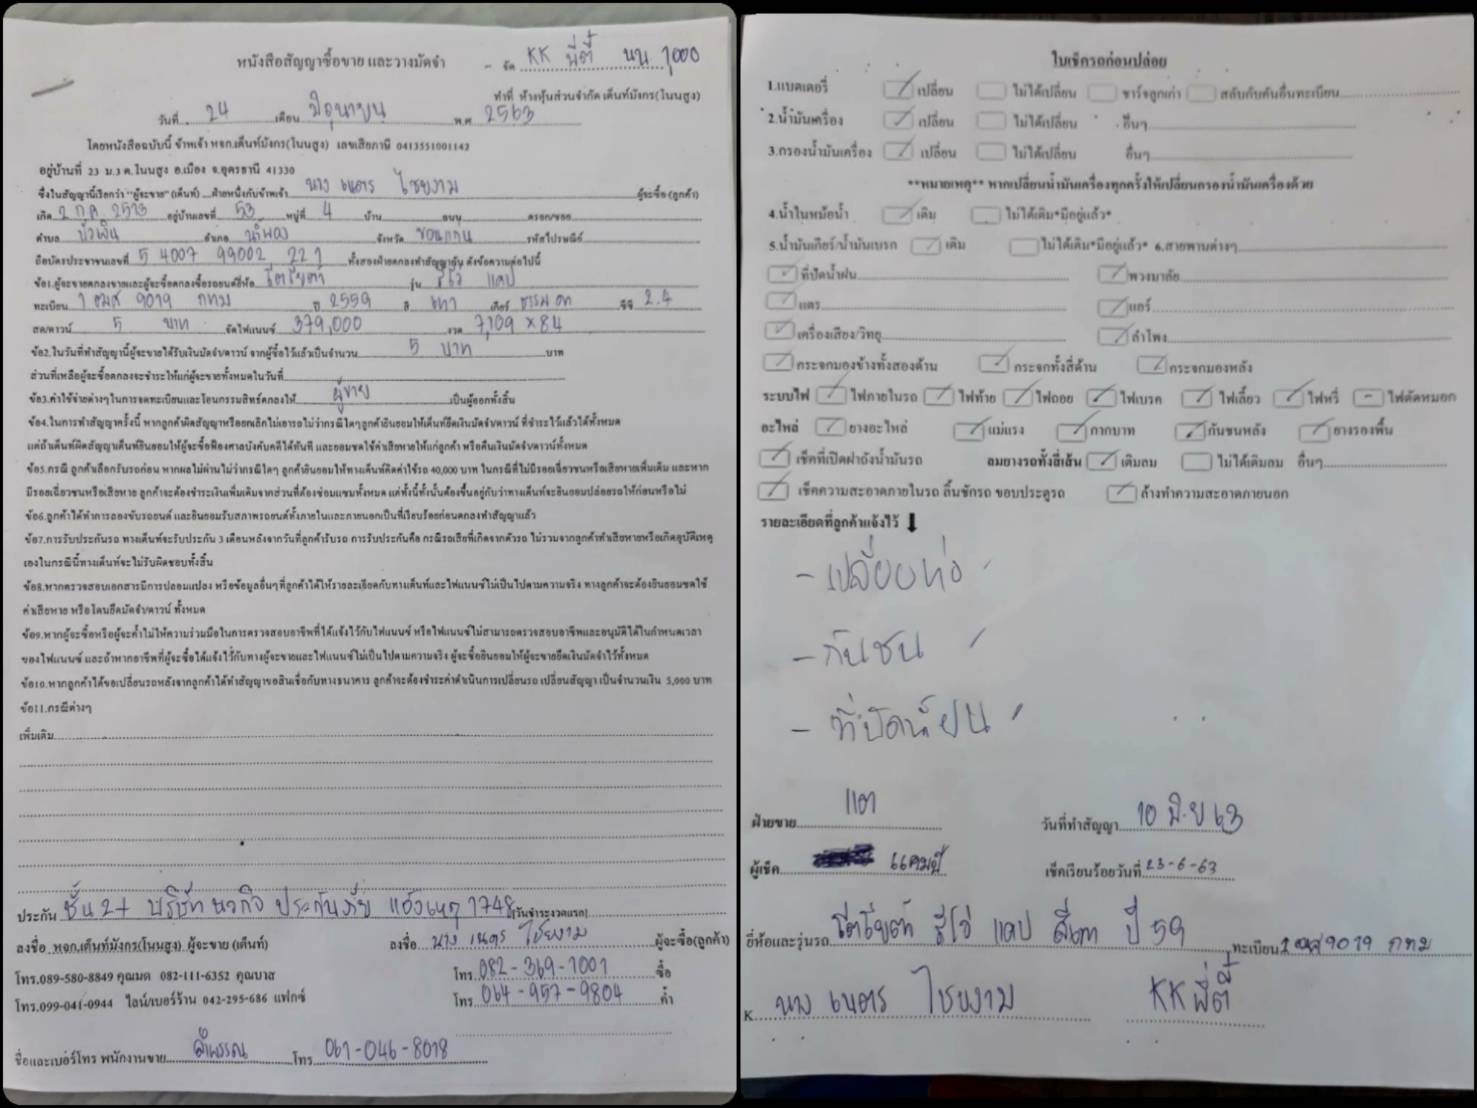 หนังสือสัญญาซื้อขาย และวางมัดจำ
- จัด KK พี่ตี้ นน 1,000
ทำที่ ห้างหุ้นส่วนจำกัด เต็นท์มังกร(โนนสูง)
วันที่ 24 เดือน มิถุนายน พ.ศ 2563
โดยหนังสือฉบับนี้ ข้าพเจ้า หจก.เต็นท์มังกร(โนนสูง) เลขเสียภาษี 0413551001142
อยู่บ้านที่ 23 ม.3 ต.โนนสูง อ.เมือง จ.อุดรธานี 41330
ซึ่งในสัญญานี้เรียกว่า "ผู้จะขาย" (เต็นท์) ฝ่ายหนึ่งกับข้าพเจ้า นาง เนตร ไชยงาม ผู้จะซื้อ (ลูกค้า)
เกิด 2 ก.ค. 2513 อยู่บ้านเลขที่ 53 หมู่ที่ 4 บ้าน ถนน ตรอก/ซอย
ตำบล บัวเงิน อำเภอ น้ำพอง จังหวัด ขอนแก่น รหัสไปรษณีย์
ถือบัตรประชาชนเลขที่ 5 4007 99002 22 1 ทั้งสองฝ่ายตกลงทำสัญญากัน ดังข้อความต่อไปนี้
ข้อ1.ผู้จะขายตกลงขายและผู้จะซื้อตกลงซื้อรถยนต์ยี่ห้อ โตโยต้า รุ่น รีโว่ แคป
ทะเบียน 1 ฒศ 9019 กทม ปี 2559 สี เทา เกียร์ ธรรมดา ซีซี 2.4
สด/ดาวน์ 5 บาท จัดไฟแนนซ์ 379,000 งวด 7,109 x 84
ข้อ2.ในวันที่ทำสัญญานี้ผู้จะขายได้รับเงินมัดจำ/ดาวน์ จากผู้ซื้อไว้แล้วเป็นจำนวน 5 บาท บาท
ส่วนที่เหลือผู้จะซื้อตกลงจะชำระให้แก่ผู้จะขายทั้งหมดในวันที่
ข้อ3.ค่าใช้จ่ายต่างๆในการจดทะเบียนและโอนกรรมสิทธิ์ตกลงให้ ผู้ขาย เป็นผู้ออกทั้งสิ้น
ข้อ4.ในการทำสัญญาครั้งนี้ หากลูกค้าผิดสัญญาหรือยกเลิกไม่เอารถ ไม่ว่ากรณีใดๆลูกค้ายินยอมให้เต็นท์ยึดเงินมัดจำ/ดาวน์ ที่ชำระไว้แล้วได้ทั้งหมด
แต่ถ้าเต็นท์ผิดสัญญาเต็นท์ยินยอมให้ผู้จะซื้อฟ้องศาลบังคับคดีได้ทันที และยอมชดใช้ค่าเสียหายให้แก่ลูกค้า หรือคืนเงินมัดจำ/ดาวน์ทั้งหมด
ข้อ5.กรณี ลูกค้าเลือกรับรถก่อน หากผลไม่ผ่านไม่ว่ากรณีใดๆ ลูกค้ายินยอมให้ทางเต็นท์คิดค่าใช้รถ 40,000 บาท ในกรณีที่ไม่มีรอยเฉี่ยวชนหรือเสียหายเพิ่มเติม และหาก
มีรอยเฉี่ยวชนหรือเสียหาย ลูกค้าจะต้องชำระเงินเพิ่มเติมจากส่วนที่ต้องซ่อมแซมทั้งหมด แต่ทั้งนี้ทั้งนั้นต้องขึ้นอยู่กับว่าทางเต็นท์จะยินยอมปล่อยรถให้ก่อนหรือไม่
ข้อ6.ลูกค้าได้ทำการลองขับรถยนต์ และยินยอมรับสภาพรถยนต์ทั้งภายในและภายนอกเป็นที่เรียบร้อยก่อนตกลงทำสัญญาแล้ว
ข้อ7.การรับประกันรถ ทางเต็นท์จะรับประกัน 3 เดือนหลังจากวันที่ลูกค้ารับรถ การรับประกันคือ กรณีรถเสียที่เกิดจากตัวรถ ไม่รวมจากลูกค้าทำเสียหายหรือเกิดอุบัติเหตุ
เองในกรณีนี้ทางเต็นท์จะไม่รับผิดชอบทั้งสิ้น
ข้อ8.หากตรวจสอบเอกสารมีการปลอมแปลง หรือข้อมูลอื่นๆที่ลูกค้าได้ให้รายละเอียดกับทางเต็นท์และไฟแนนซ์ไม่เป็นไปตามความจริง ทางลูกค้าจะต้องยินยอมชดใช้
ค่าเสียหาย หรือโดนยึดมัดจำ/ดาวน์ ทั้งหมด
ข้อ9.หากผู้จะซื้อหรือผู้จะค้ำไม่ให้ความร่วมมือในการตรวจสอบอาชีพที่ได้แจ้งไว้กับไฟแนนซ์ หรือไฟแนนซ์ไม่สามารถตรวจสอบอาชีพและอนุมัติได้ในกำหนดเวลา
ของไฟแนนซ์ และถ้าหากอาชีพที่ผู้จะซื้อได้แจ้งไว้กับทางผู้จะขายและไฟแนนซ์ไม่เป็นไปตามความจริง ผู้จะซื้อยินยอมให้ผู้จะขายยึดเงินมัดจำไว้ทั้งหมด
ข้อ10.หากลูกค้าได้ขอเปลี่ยนรถหลังจากลูกค้าได้ทำสัญญาขอสินเชื่อกับทางธนาคาร ลูกค้าจะต้องชำระค่าดำเนินการเปลี่ยนรถ เปลี่ยนสัญญา เป็นจำนวนเงิน 5,000 บาท
ข้อ11.กรณีต่างๆ
เพิ่มเติม
ประกัน ชั้น 2+ บริษัท นวกิจ ประกันภัย แจ้งเหตุ 1748 (วันชำระงวดแรก)
ลงชื่อ หจก.เต็นท์มังกร(โนนสูง) ผู้จะขาย (เต็นท์) ลงชื่อ นาง เนตร ไชยงาม ผู้จะซื้อ(ลูกค้า)
โทร.089-580-8849 คุณมด 082-111-6352 คุณบาส โทร. 082-369-1001 ซื้อ
โทร.099-041-0944 ไลน์/เบอร์ร้าน 042-295-686 แฟกซ์ โทร. 064-957-9804 ค้ำ
ชื่อและเบอร์โทร พนักงานขาย ลำพรรณ โทร 061-046-8018
ใบเช็ครถก่อนปล่อย
1.แบตเตอรี่ เปลี่ยน ไม่ได้เปลี่ยน ชาร์จลูกเก่า สลับกับคันอื่นทะเบียน
2.น้ำมันเครื่อง เปลี่ยน ไม่ได้เปลี่ยน อื่นๆ
3.กรองน้ำมันเครื่อง เปลี่ยน ไม่ได้เปลี่ยน อื่นๆ
**หมายเหตุ** หากเปลี่ยนน้ำมันเครื่องทุกครั้งให้เปลี่ยนกรองน้ำมันเครื่องด้วย
4.น้ำในหม้อน้ำ เติม ไม่ได้เติม*มีอยู่แล้ว*
5.น้ำมันเกียร์/น้ำมันเบรก เติม ไม่ได้เติม*มีอยู่แล้ว* 6.สายพานต่างๆ
ที่ปัดน้ำฝน พวงมาลัย
แตร แอร์
เครื่องเสียง/วิทยุ ลำโพง
กระจกมองข้างทั้งสองด้าน กระจกทั้งสี่ด้าน กระจกมองหลัง
ระบบไฟ ไฟภายในรถ ไฟท้าย ไฟถอย ไฟเบรก ไฟเลี้ยว ไฟหรี่ ไฟตัดหมอก
อะไหล่ ยางอะไหล่ แม่แรง กากบาท กันชนหลัง ยางรองพื้น
เช็คที่เปิดฝาถังน้ำมันรถ ลมยางรถทั้งสี่เส้น เติมลม ไม่ได้เติมลม อื่นๆ
เช็คความสะอาดภายในรถ ลิ้นชักรถ ขอบประตูรถ ล้างทำความสะอาดภายนอก
รายละเอียดที่ลูกค้าแจ้งไว้
- เปลี่ยนท่อ
- กันชน
- ที่ปัดน้ำฝน
ฝ่ายขาย แต วันที่ทำสัญญา 10 มิ.ย 63
ผู้เช็ค แคมป์ เช็คเรียบร้อยวันที่ 23-6-63
ยี่ห้อและรุ่นรถ โตโยต้า รีโว่ แคป สีเทา ปี 59 ทะเบียน 1 ฒศ 9019 กทม
K นาง เนตร ไชยงาม KK พี่ตี้